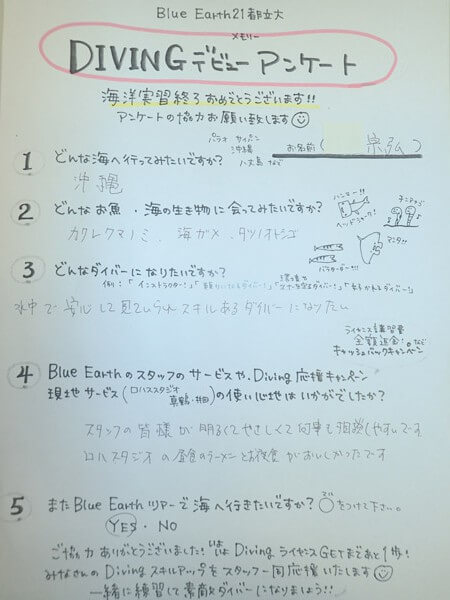 Blue Earth21都立大
メモリー
DIVINGデビューアンケート
海洋実習終了おめでとうございます!!
アンケートの協力お願い致します
パラオ サイパン
沖縄
八丈島 など
お名前( 宗弘)
1 どんな海へ行ってみたいですか?
沖縄
2 どんなお魚・海の生き物に会ってみたいですか?
カクレクマノミ、海ガメ、タツノオトシゴ
ハンマー!!
ヘッドシャーク!
チンアナゴ
マンタ!!
バラクーダー!!!
3 どんなダイバーになりたいですか?
例:「インストラクター!」「頼りになるダイバー!」「環境を守るダイバー!」
水中で安心して見ていられスキルあるダイバーになりたい
ライセンス講習費
全額返金!など
キャッシュバックキャンペーン
4 Blue Earthのスタッフのサービスや、Diving応援キャンペーン
現地サービス(ロハススタジオ 真鶴・井田)の使い心地はいかがでしたか?
スタッフの皆様が明るくてやさしくて何事も相談しやすいです
ロハスタジオの昼食のラーメンとお夜食がおいしかったです
5 またBlue Earthツアーで海へ行きたいですか?○をつけて下さい。
YES・NO
ご協力ありがとうございました!いよいよDivingライセンスGETまであと1歩!
みなさんのDivingスキルアップをスタッフ一同応援いたします
一緒に練習して素敵なダイバーになりましょう!!